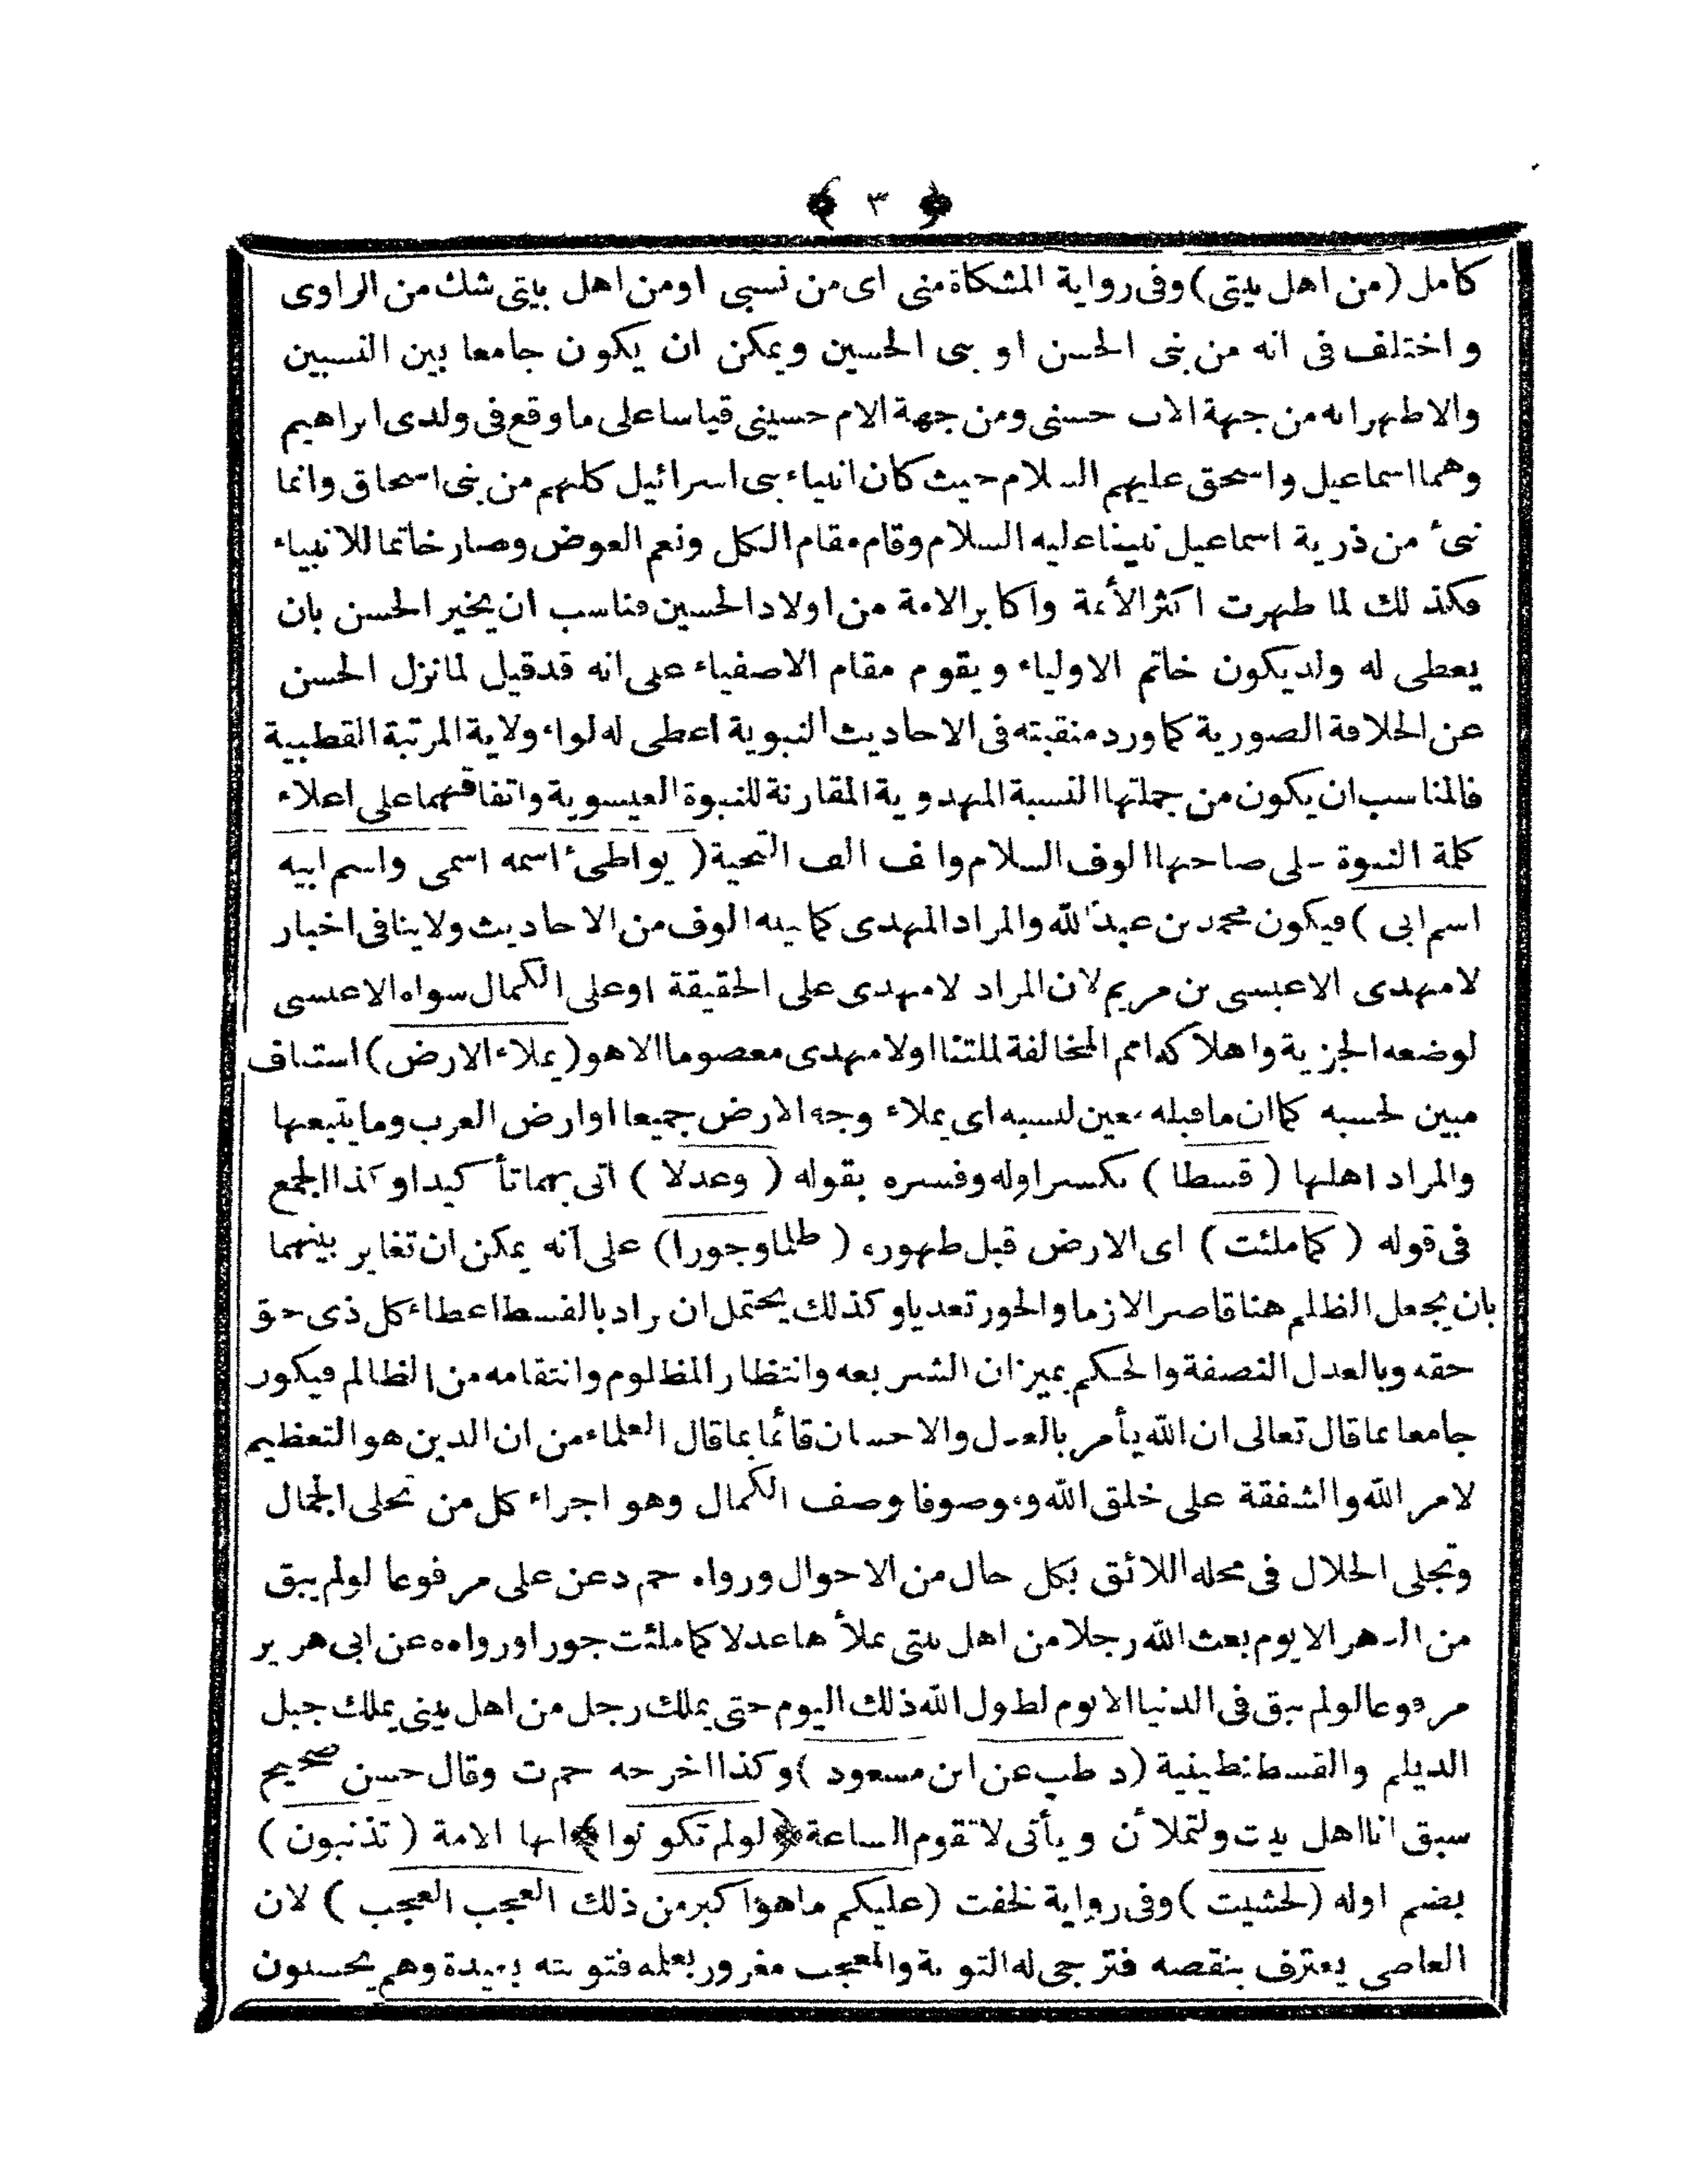 ﴿ ٣ ﴾
كامل (من اهل بيتى) وفى رواية المشكاة منى اى من نسبى او من اهل بيتى شك من الراوى
واختلف فى انه من بنى الحسن او بنى الحسين ويمكن ان يكون جامعا بين النسبين
والاظهر انه من جهة الاب حسنى ومن جهة الام حسينى قياسا على ما وقع فى ولدى ابراهيم
وهما اسماعيل واسحق عليهم السلام حيث كان انبياء بنى اسرائيل كلهم من بنى اسحاق وانما
نبئ من ذرية اسماعيل نبينا عليه السلام وقام مقام الكل ونعم العوض وصار خاتما للانبياء
فكذلك لما ظهرت اكثر الأئمة واكابر الامة من اولاد الحسين فناسب ان يخير الحسن بان
يعطى له ولد يكون خاتم الاولياء ويقوم مقام الاصفياء على انه قد قيل لما نزل الحسن
عن الخلافة الصورية كما ورد منقبته فى الاحاديث النبوية اعطى له لواء ولاية المرتبة القطبية
فالمناسب ان يكون من جملتها النسبة المهدوية المقارنة للنبوة العيسوية واتفاقهما على اعلاء
كلمة النبوة على صاحبها الوف السلام والف الف التحية (يواطئ اسمه اسمى واسم ابيه
اسم ابى) فيكون محمد بن عبد الله والمراد المهدى كما بينه الوف من الاحاديث ولا ينافى اخبار
لا مهدى الا عيسى بن مريم لان المراد لا مهدى على الحقيقة او على الكمال سواه الا عيسى
لوضعه الجزية واهلاكه امم المخالفة لملتنا او لا مهدى معصوما الا هو (يملاء الارض) استيناف
مبين لحسبه كما ان ما قبله معين لنسبه اى يملاء وجه الارض جميعا او ارض العرب وما يتبعها
والمراد اهلها (قسطا) بكسر اوله وفسره بقوله (وعدلا) اتى بهما تأكيدا وكذا الجمع
فى قوله (كما ملئت) اى الارض قبل ظهوره (ظلما وجورا) على أنه يمكن ان تغاير بينهما
بان يجعل الظلم هنا قاصر الازما والجور تعديا وكذلك يحتمل ان يراد بالقسط اعطاء كل ذى حق
حقه وبالعدل النصفة والحكم بميزان الشريعه وانتظار المظلوم وانتقامه من الظالم فيكون
جامعا بما قال تعالى ان الله يأمر بالعدل والاحسان قائما بما قال العلماء من ان الدين هو التعظيم
لامر الله والشفقة على خلق الله وموصوفا وصف الكمال وهو اجراء كل من تجلى الجمال
وتجلى الجلال فى محله اللائق بكل حال من الاحوال ورواه حم د عن على مرفوعا لو لم يبق
من الدهر الا يوم بعث الله رجلا من اهل بيتى يملأها عدلا كما ملئت جورا ورواه ه عن ابى هرير
مرفوعا لو لم يبق فى الدنيا الا يوم لطول الله ذلك اليوم حتى يملك رجل من اهل بيتى يملك جبل
الديلم والقسطنطينية (د طب عن ابن مسعود) وكذا اخرجه حم ت وقال حسن صحيح
سبق انا اهل بيت ولتملأن ويأتى لا تقوم الساعة ﴿لو لم تكونوا﴾ ايها الامة (تذنبون)
بضم اوله (لخشيت) وفى رواية لخفت (عليكم ما هو اكبر من ذلك العجب العجب) لان
العاصى يعترف بنقصه فترجى له التوبة والمعجب مغرور بعمله فتوبته بعيدة وهم يحسبون